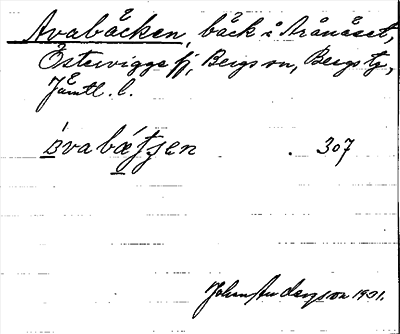 Avabäcken, bäck i Årånäset,
Österviggefj, Bergs sn, Bergs tg,
Jämtl. l.
åvabæ̀tʃen . 307
Johan Anderzson 1931.